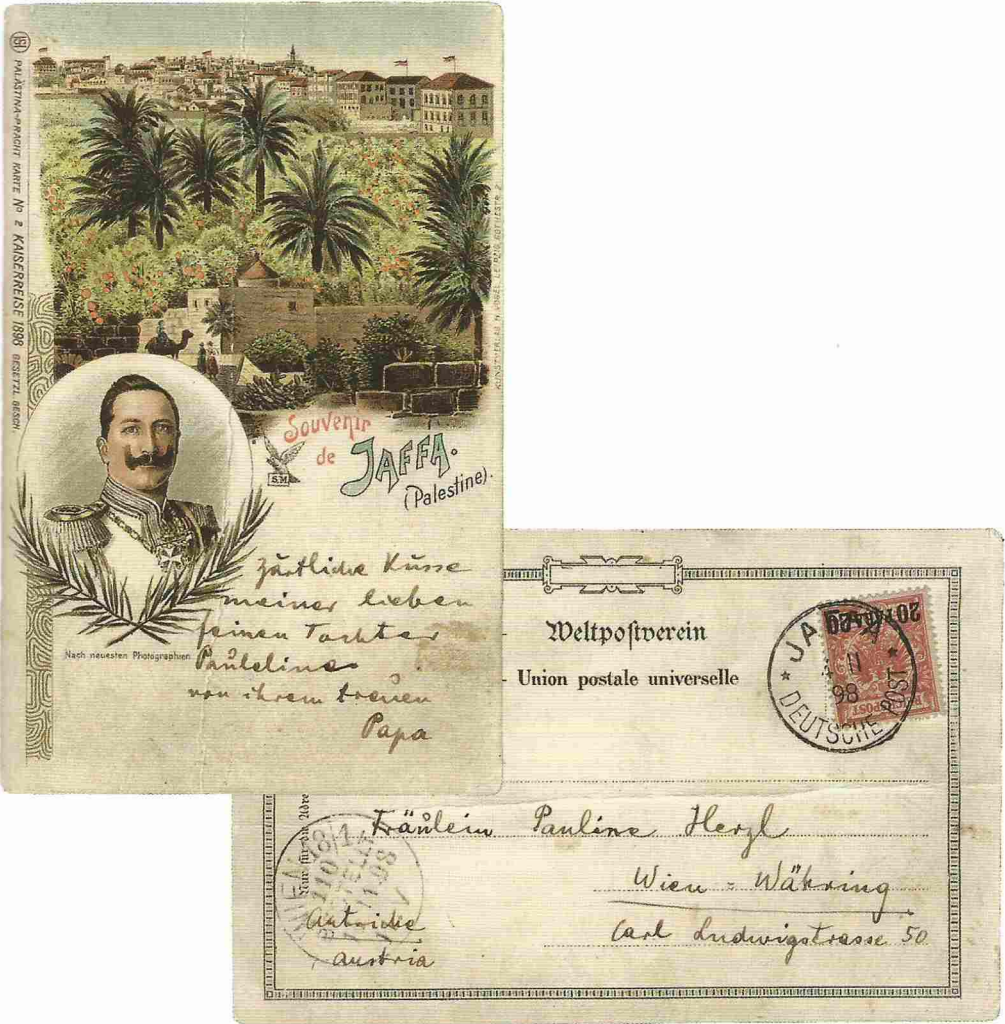 PALÄSTINA-PRACHT KARTE No 2 KAISERREISE 1898 GESETZL. GESCH
KUNSTVERLAG H. VOGEL LEIPZIG GOTHESTR. 2
Souvenir
de JAFFA.
(Palestine).
S.M.
Nach neuesten Photographien
zärtliche Küsse
meiner lieben
feinen Tochter
Pauleline
von ihrem treuen
Papa
Weltpostverein
Union postale universelle
JAFFA
11
98
DEUTSCHE POST
Nur für die Adre
Fräulein Pauline Herzl
Wien - Währing
Carl Ludwigstrasse 50
Autriche
Austria
WIEN 18/1
110
BESTELLT
11.98